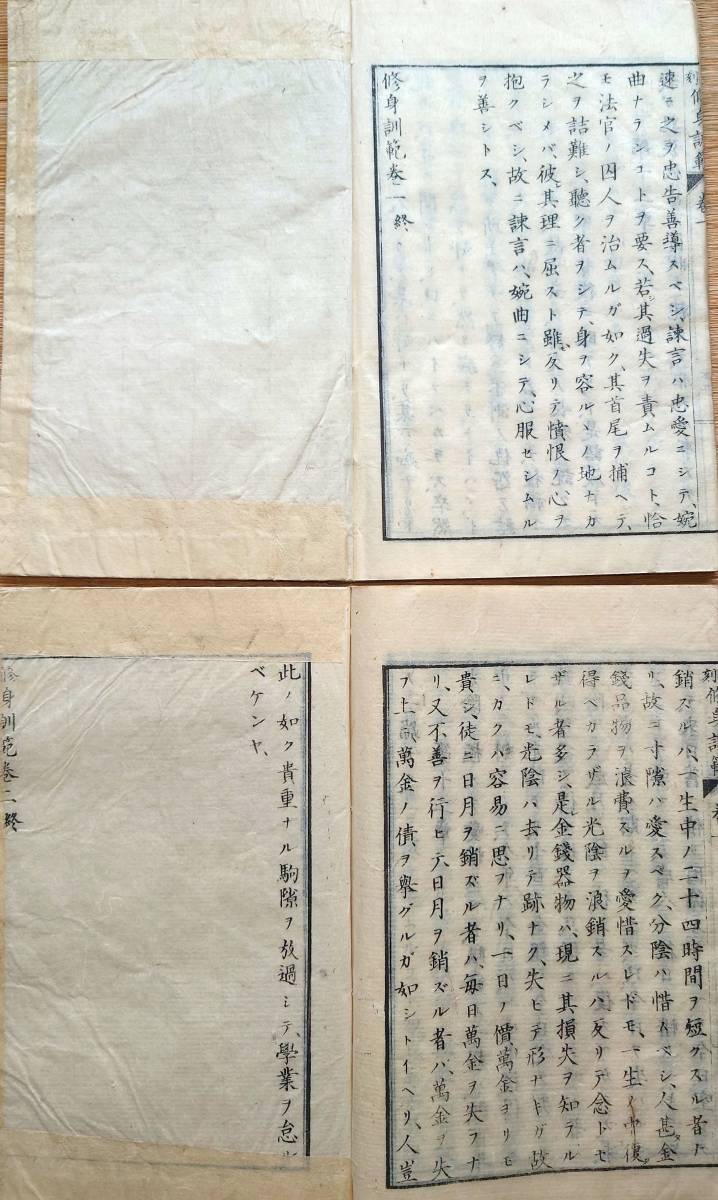 刻修身訓範 卷一
速ニ之ヲ忠告善導スベシ、諫言ハ忠愛ニシテ、婉
曲ナランコトヲ要ス、若シ其過失ヲ責ムルコト、恰
モ法官ノ囚人ヲ治ムルガ如ク、其首尾ヲ捕ヘテ、
之ヲ詰難シ、聽ク者ヲシテ、身ヲ容ルヽノ地ナカ
ラシメバ、彼其理ニ屈スト雖モ、反リテ憤恨ノ心ヲ
抱クベシ、故ニ諫言ハ、婉曲ニシテ、心服セシムル
ヲ善シトス、
修身訓範卷一終
刻修身訓範
銷スルハ、一生中ノ二十四時間ヲ短クスル者ナ
リ、故ニ寸隙ハ愛スベク、分陰ハ惜ムベシ、人甚ダ金
錢品物ヲ浪費スルヲ愛惜スレドモ、一生ノ中復
得ベカラザル光陰ヲ浪銷スルハ、反リテ念トモ
ザル者多シ、是金錢器物ハ、現ニ其損失ヲ知テル
レドモ、光陰ハ去リテ跡ナク、失ヒテ形ナキガ故
ニ、カクハ容易ニ思フナリ、一日ノ價、萬金ヨリモ
貴シ、徒ニ日月ヲ銷ズル者ハ、毎日萬金ヲ失フナ
リ、又不善ヲ行ヒテ、日月ヲ銷ズル者ハ、萬金ヲ失
フ上ニ、萬金ノ債ヲ擧グルガ如シトイヘリ、人豈
此ノ如ク貴重ナル駒隙ヲ放過シテ、學業ヲ怠ル
ベケンヤ、
修身訓範卷二終